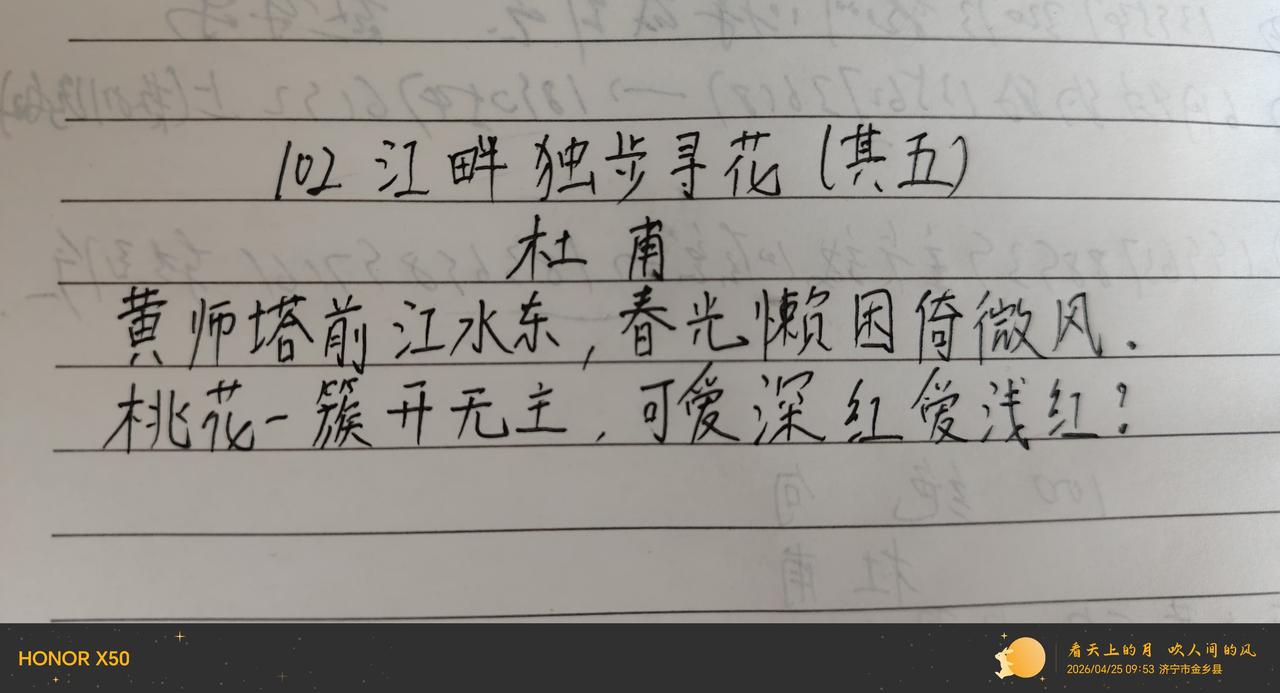 102 江畔独步寻花(其五)
杜甫
黄师塔前江水东,春光懒困倚微风.
桃花一簇开无主,可爱深红爱浅红?
100 绝句
杜甫
HONOR X50
看天上的月 吹人间的风
2026/04/25 09:53 济宁市金乡县